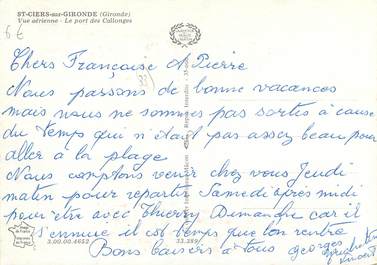 6€
ST-CIERS-sur-GIRONDE (Gironde)
Vue aérienne - Le port des Callonges
Chers Françoise et Pierre
Nous passons de bonne vacances
mais nous ne sommes pas sortis à cause
du temps qui n'était pas assez beau pour
aller à la plage
Nous comptons venir chez vous Jeudi
matin pour repartir Samedi après midi
pour être avec Thierry Dimanche car il
s'ennuie il est temps que l'on rentre
Bons baisers à tous georges
3.00.00.4652
33.389